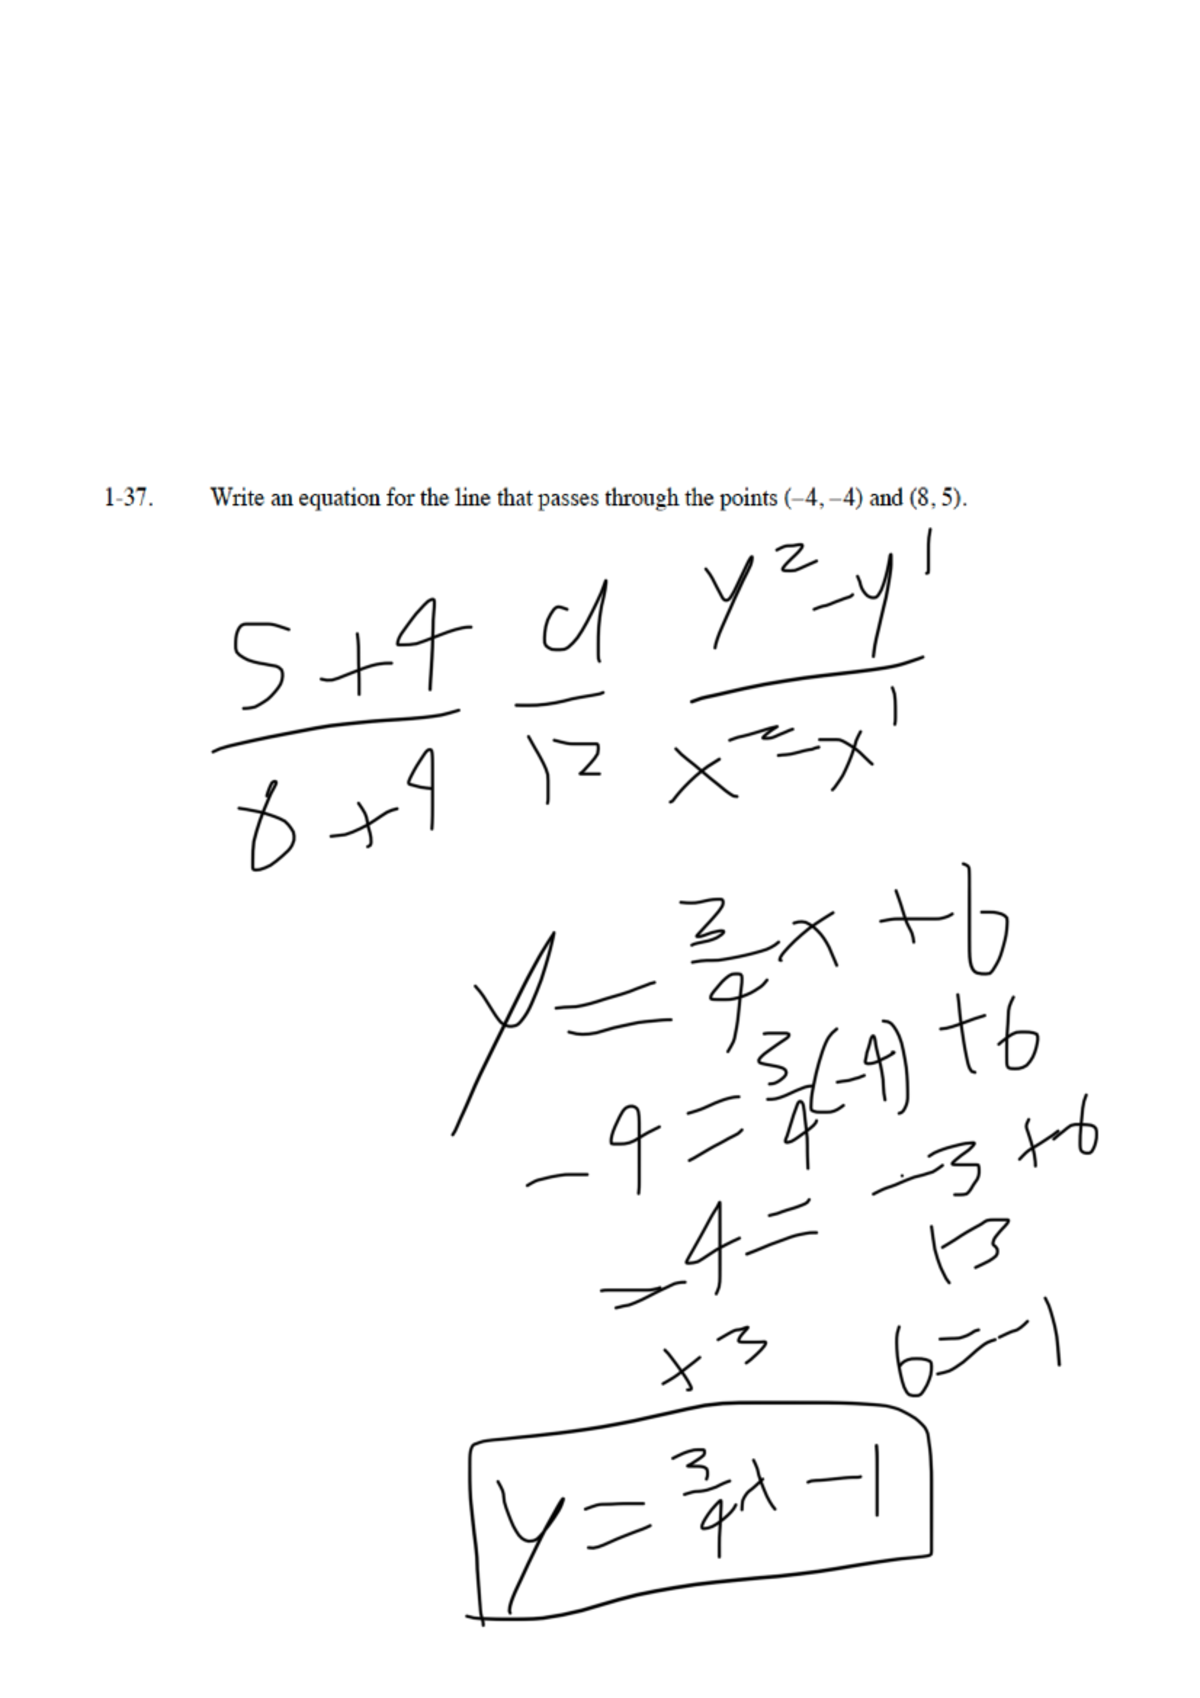 1-37. Write an equation for the line that passes through the points (–4, –4) and (8, 5).
5+4 9 y²-y¹
8+4 12 x²-x¹
y = 3/4 x + b
-4 = 3/4(-4) + b
-4 = -3 + b
+3 +3
b = -1
y = 3/4 x - 1